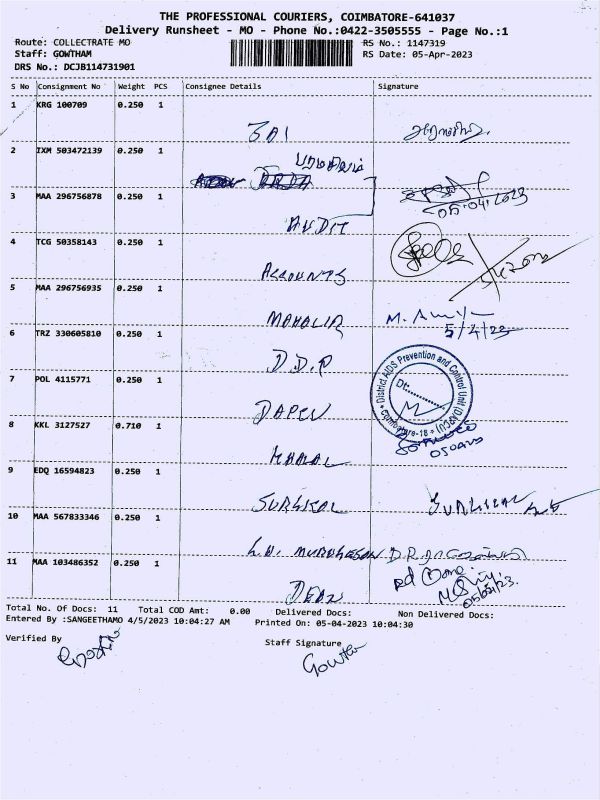 THE PROFESSIONAL COURIERS, COIMBATORE-641037
Delivery Runsheet - MO - Phone No.:0422-3505555 - Page No.:1
Route: COLLECTRATE MO RS No.: 1147319
Staff: GOWTHAM RS Date: 05-Apr-2023
DRS No.: DCJB114731901
S No Consignment No Weight PCS Consignee Details Signature
1 KRG 100709 0.250 1
2 IXM 503472139 0.250 1
3 MAA 296756878 0.250 1
05.04.2023
AUDIT
4 TCG 50358143 0.250 1
ACCOUNTS
5 MAA 296756935 0.250 1
5/4/23
6 TRZ 330605810 0.250 1
D.D.P
District AIDS Prevention and Control Unit (DAPCU)
Coimbatore-18
Dt:
7 POL 4115771 0.250 1
DAPCU
8 KKL 3127527 0.710 1
KAMAL
9 EDQ 16594823 0.250 1
SURGICAL
10 MAA 567833346 0.250 1
MURUGESAN D.R.
11 MAA 103486352 0.250 1
DEAN
Total No. Of Docs: 11 Total COD Amt: 0.00 Delivered Docs: Non Delivered Docs:
Entered By :SANGEETHAMO 4/5/2023 10:04:27 AM Printed On: 05-04-2023 10:04:30
Verified By Staff Signature
Gowtham